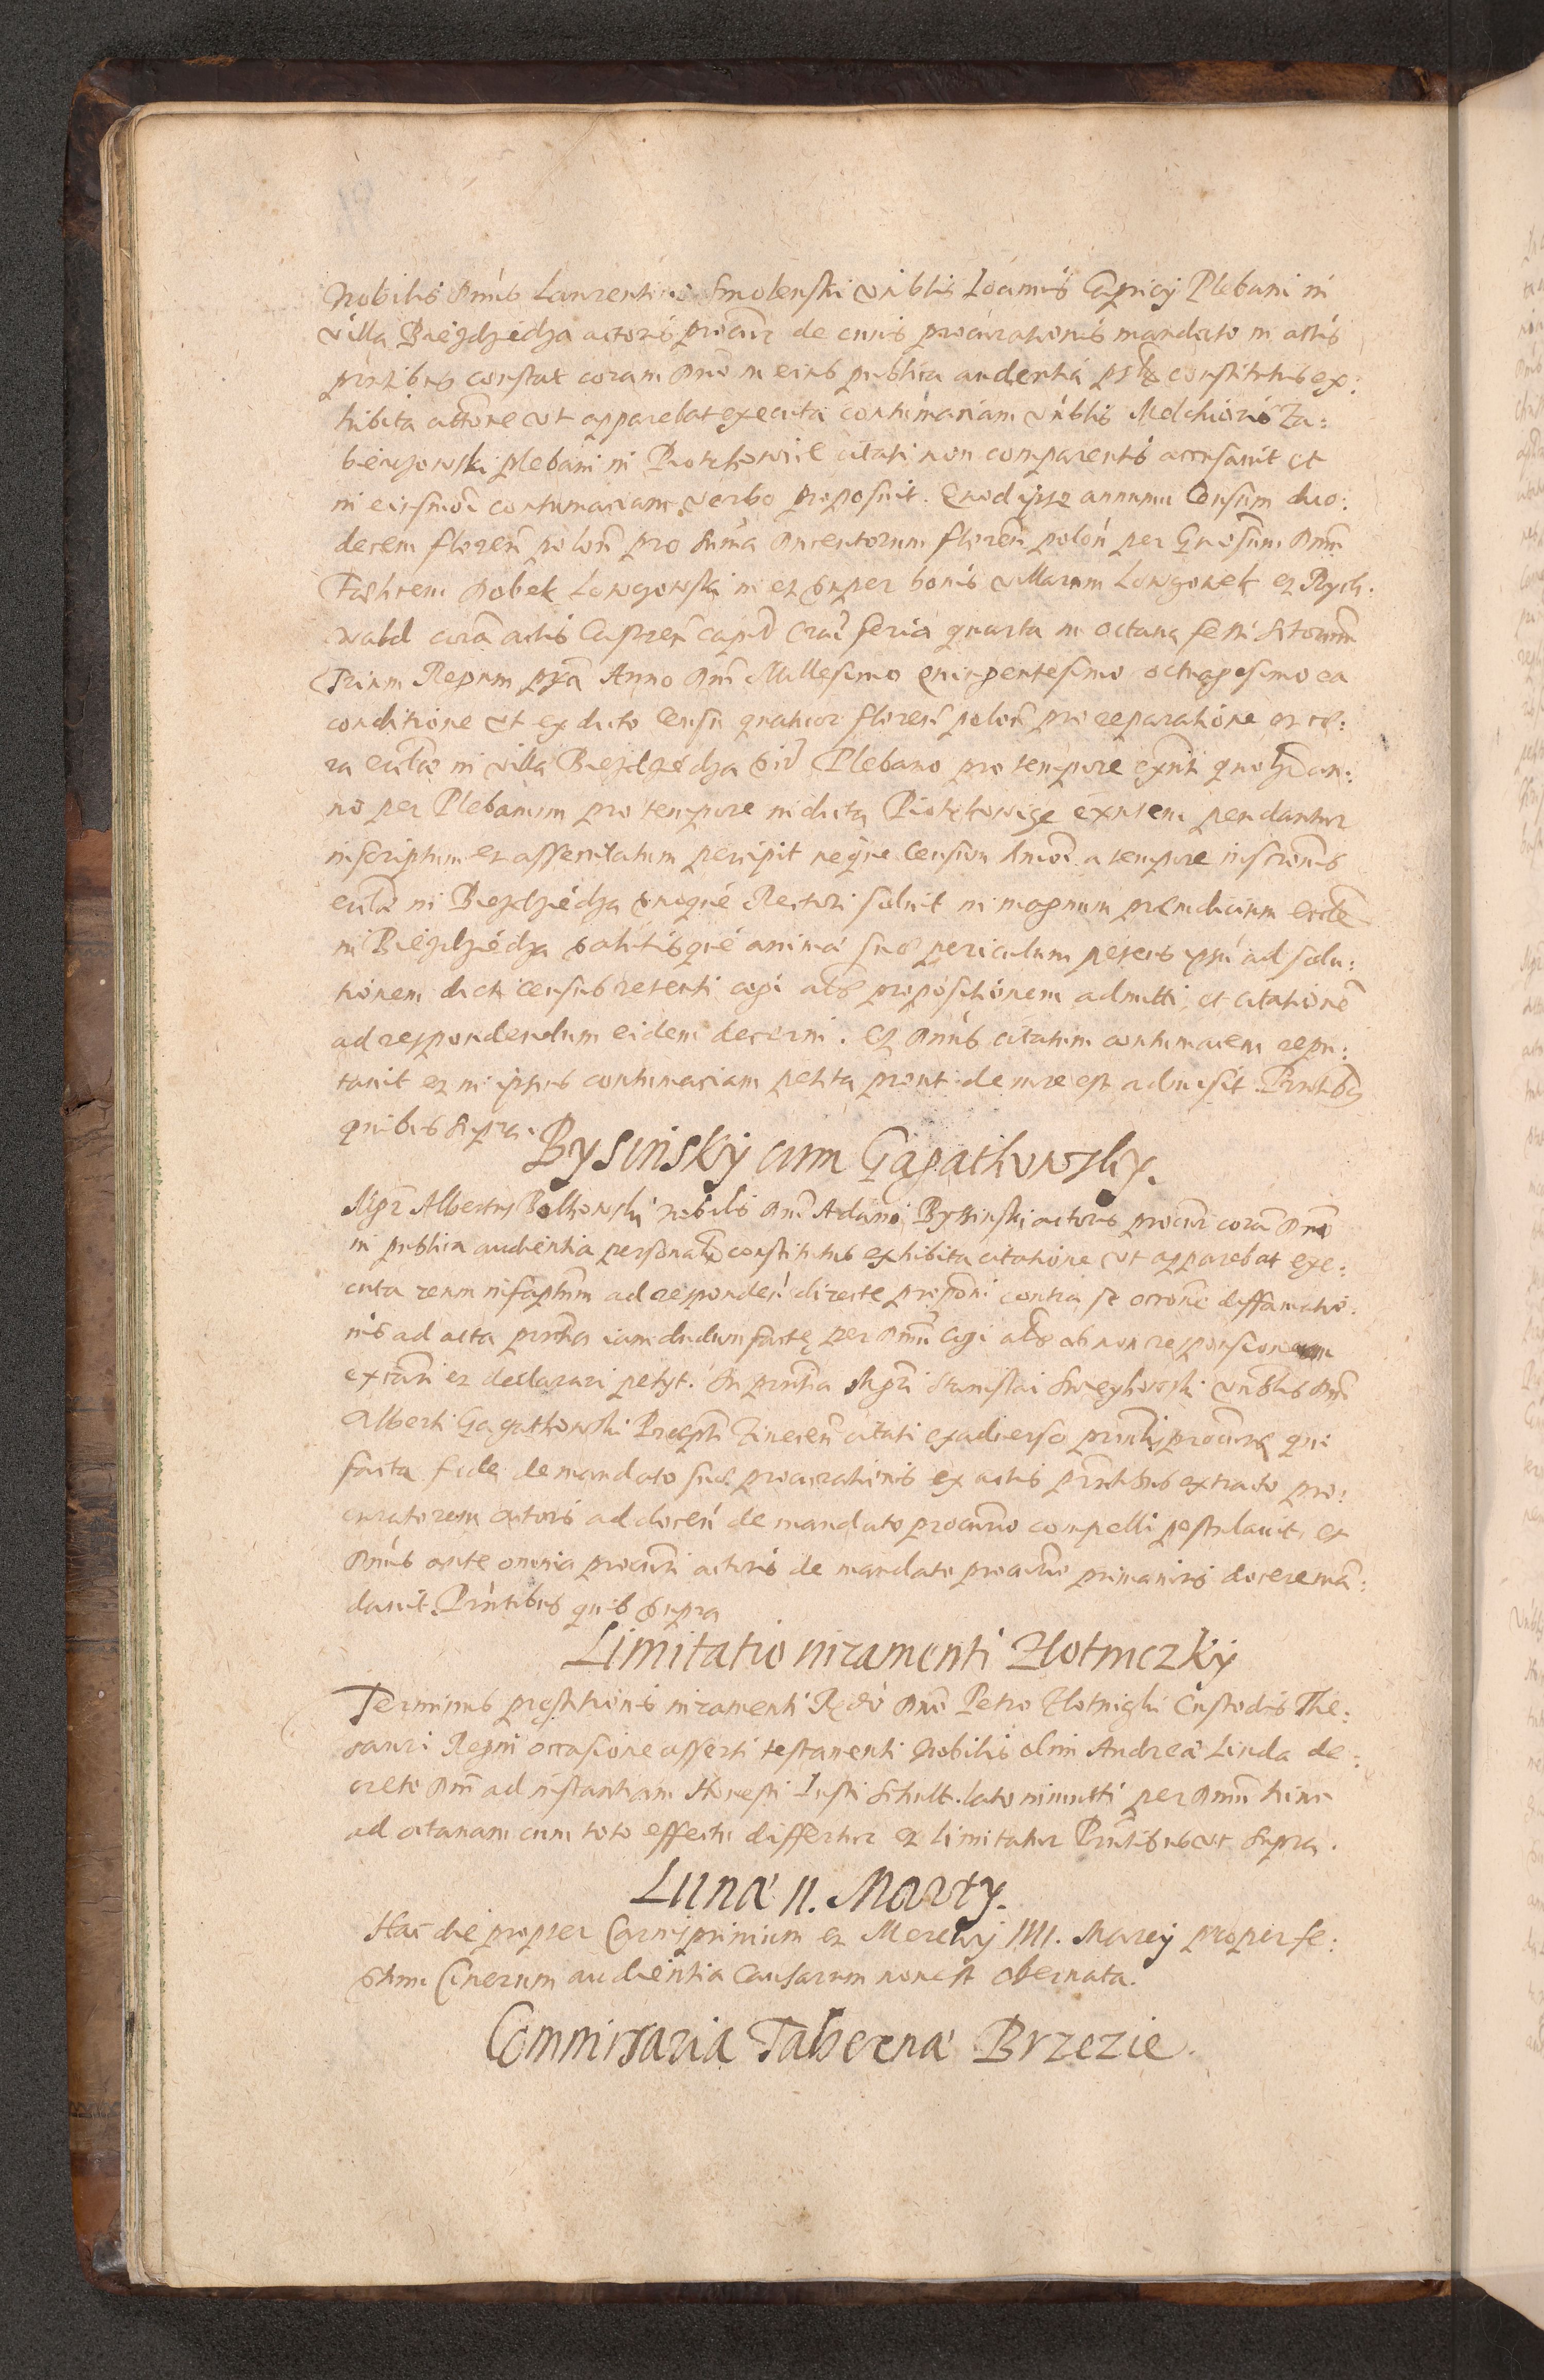 Nobilis Dnus Laurentius Smolenski Vnblis Ioannis Capricy Plebani in
villa Bieżdżiedza actoris procur de cuius procurationis mandato in actis
pntibus constat coram Dno in eius publica audentia psolr constitutus ex:
hibita citatione ut apparebat executa contumaciam Vnblis Melchioris Za:
bierzowski plebani in Piotrkowice citati non comparentis accusavit et
in eiusmodi contumaciam verbo proposuit. Quod ipse annuum Censum duo:
decem floren polon pro summa ducentorum floren polon per Gnosum Dnm
Dobek Lowgowski in et super bonis villarum Lowgowek et Rych:
wald cora actis Castren capit Crac feria quarta in octava festi Sctorum
Trium Regum pxa Anno Dni Millesimo Quingentesimo octuagesimo ea
conditione ut ex dicto censu quatuor floren polon pro reparatione et
ra eccliae in villa Bieżdżiedza Plebano pro tempore exnti quolzan:
no per Plebanum pro tempore in dicta Piotrkowice exntem pendantur
inscriptum et assecuratum percipit neque Censum Dmoi a tempore inscronis
eccliae in Bieżdżiedza suoque Rectori solvit in magnum praeiudicium
in Bieżdżiedza salutisque animae suae periculum petens ipsu ad solu:
tionem dicti census retenti cogi als propositionem admitti et citatione
ad respondendum eidem decerni. et Dnus citatum contumacem repu:
tavit et in ipsius contumaciam petita prout de iure est admisit. Pntibus
quibus supra.
Bysinsky cum Gagathowsky.
Mgr Albertus Bolkowski nobilis Dni Adami Byssinski actoris procur cora Dno
in publica audientia personalr constitutus exhibita citatione ut apparebat exe:
cuta reum infrapntum ad responden directe proponi contra se occone diffamatio:
nis ad acta pntia iam dudum factę per Dnum cogi als ob non responsionem
excōri et declarari petyt. In pntia Mgri Stanislai Vnblis Dni
Alberti Gagathowski citati ex adverso pntis procuris qui
facta fide de mandato suae procurationis ex actis pntibus extracto pro:
curatorem actoris ad docen de mandato procurio compelli postulavit. et
Dnus ante omnia procuri actoris de mandato procurio primarius docere ma:
davit. Pntibus quib supra
Limitatio iuramenti Zlotniczky
Terminus prestitionis iuramenti Rdo Dno Petro Zlotnighi Custodis The:
sauri Regni occasione asserti testamenti Nobilis olim Andreae Linda de:
creto Dni ad instantiam Honesti Iusti Schult. lato iniuncti per Dnum hinc
ad octavam cum toto effectu differtur et limitatur Pntibus ut supra.
Lunae 11. Marty.
Hac die propter Carnisprivium et Mercurj 1111. Marcij propter fe:
stum Cinerum audientia Causarum non est observata.
Commissaria Tabernae Brzezie.